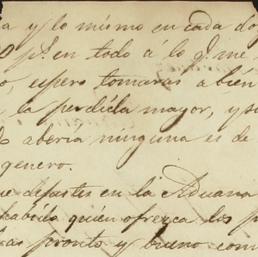 a y lo mismo en cada do
pr. en todo á lo q. me
espero tomaras a bien
la perdida mayor, y si
aberia ninguna es de
genero.
que dejastes en la Aduana
habido quien ofrezca los p
mas pronto y bueno com